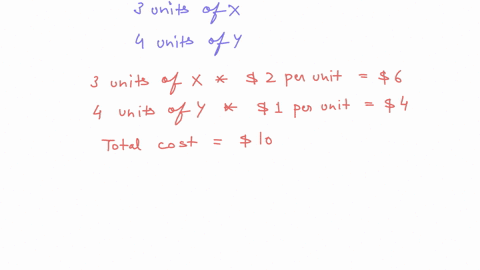 3 units of X
4 units of Y
3 units of X * $2 per unit = $6
4 units of Y * $1 per unit = $4
Total cost = $10